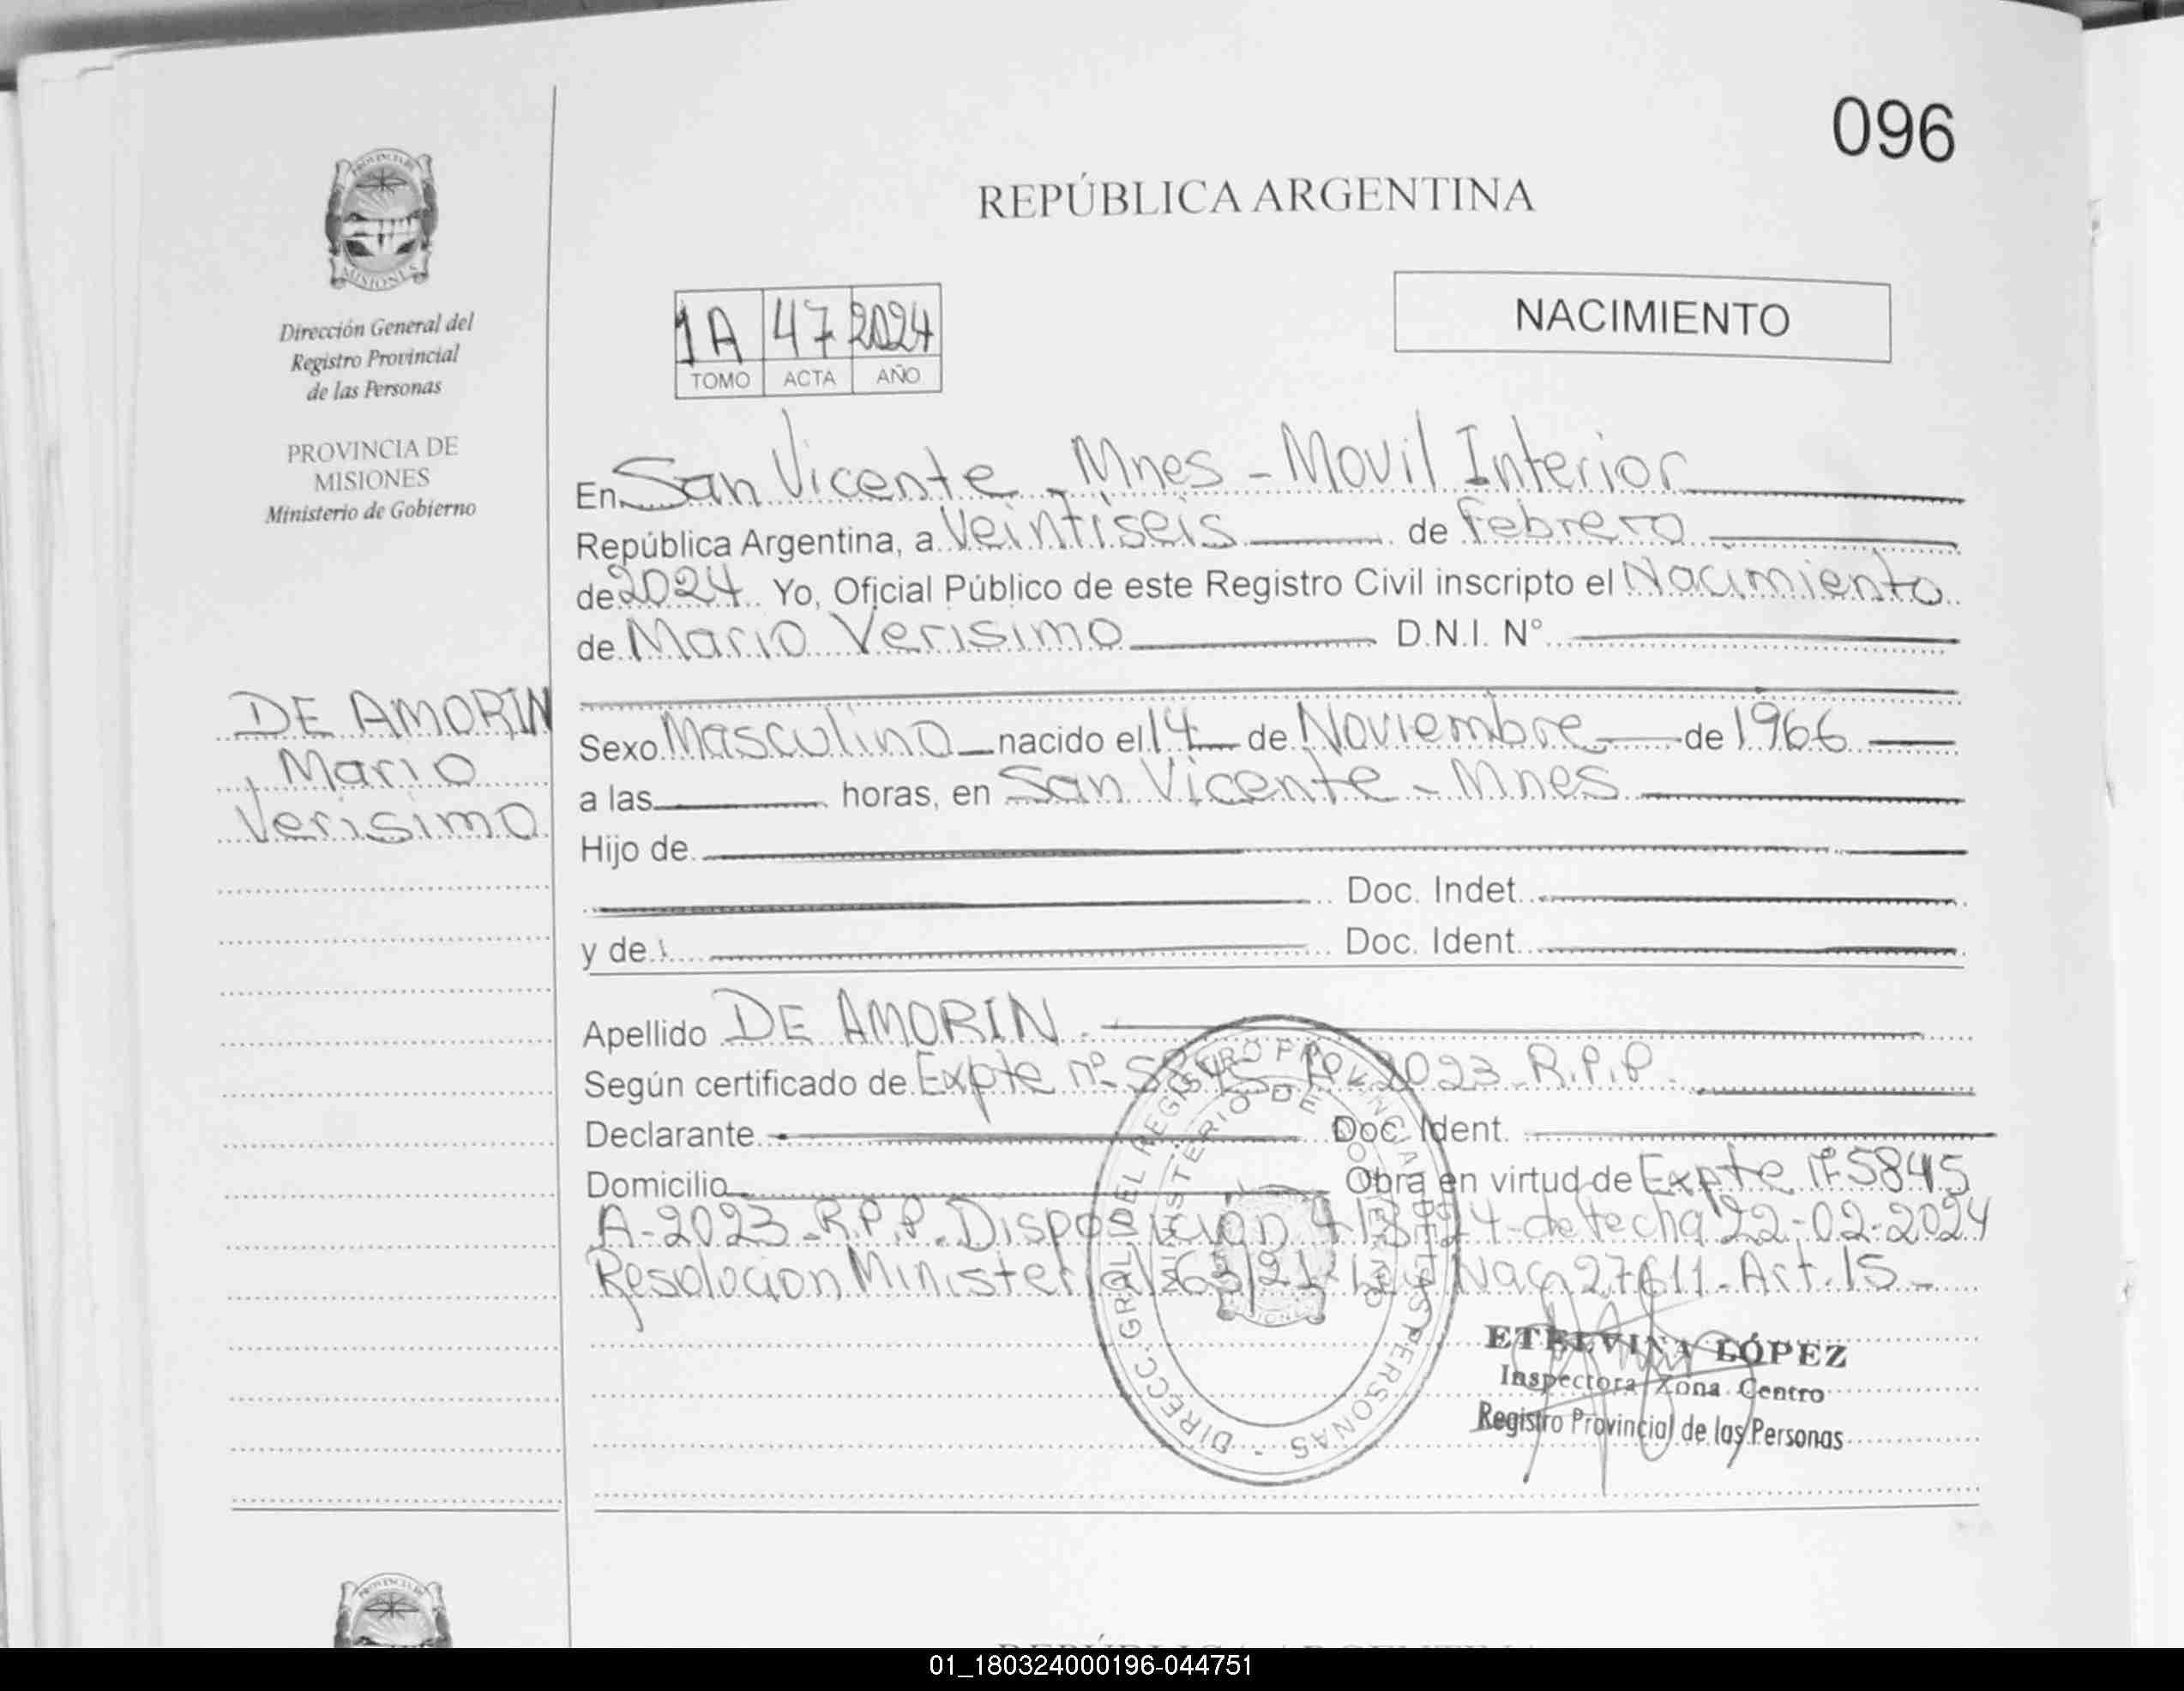 096
REPÚBLICA ARGENTINA
NACIMIENTO
1A 47 2024
TOMO ACTA AÑO
PROVINCIA DE MISIONES
Dirección General del
Registro Provincial
de las Personas
PROVINCIA DE
MISIONES
Ministerio de Gobierno
DE AMORIN
Mario
Verisimo
En San Vicente - Mnes - Movil Interior
República Argentina, a Veintiseis de febrero
de 2024 Yo, Oficial Público de este Registro Civil inscripto el Nacimiento
de Mario Verisimo D.N.I. N°
Sexo Masculino nacido el 14 de Noviembre de 1966
a las horas, en San Vicente - Mnes
Hijo de
Doc. Indet.
y de Doc. Ident.
Apellido DE AMORIN.
Según certificado de Expte nº 2023-R.P.P.
Declarante Doc. Ident.
Domicilio Obra en virtud de Expte nº 5845
A-2023-R.P.P. Disposicion de fecha 22-02-2024
Resolucion Ministerial 63/21 Ley Nac. 27611-Art. 15-
DIRECC. GRAL DEL REGISTRO PROVINCIAL DE LAS PERSONAS -
MINISTERIO DE GOBIERNO
ETELVINA LÓPEZ
Inspectora Zona Centro
Registro Provincial de las Personas
01_180324000196-044751